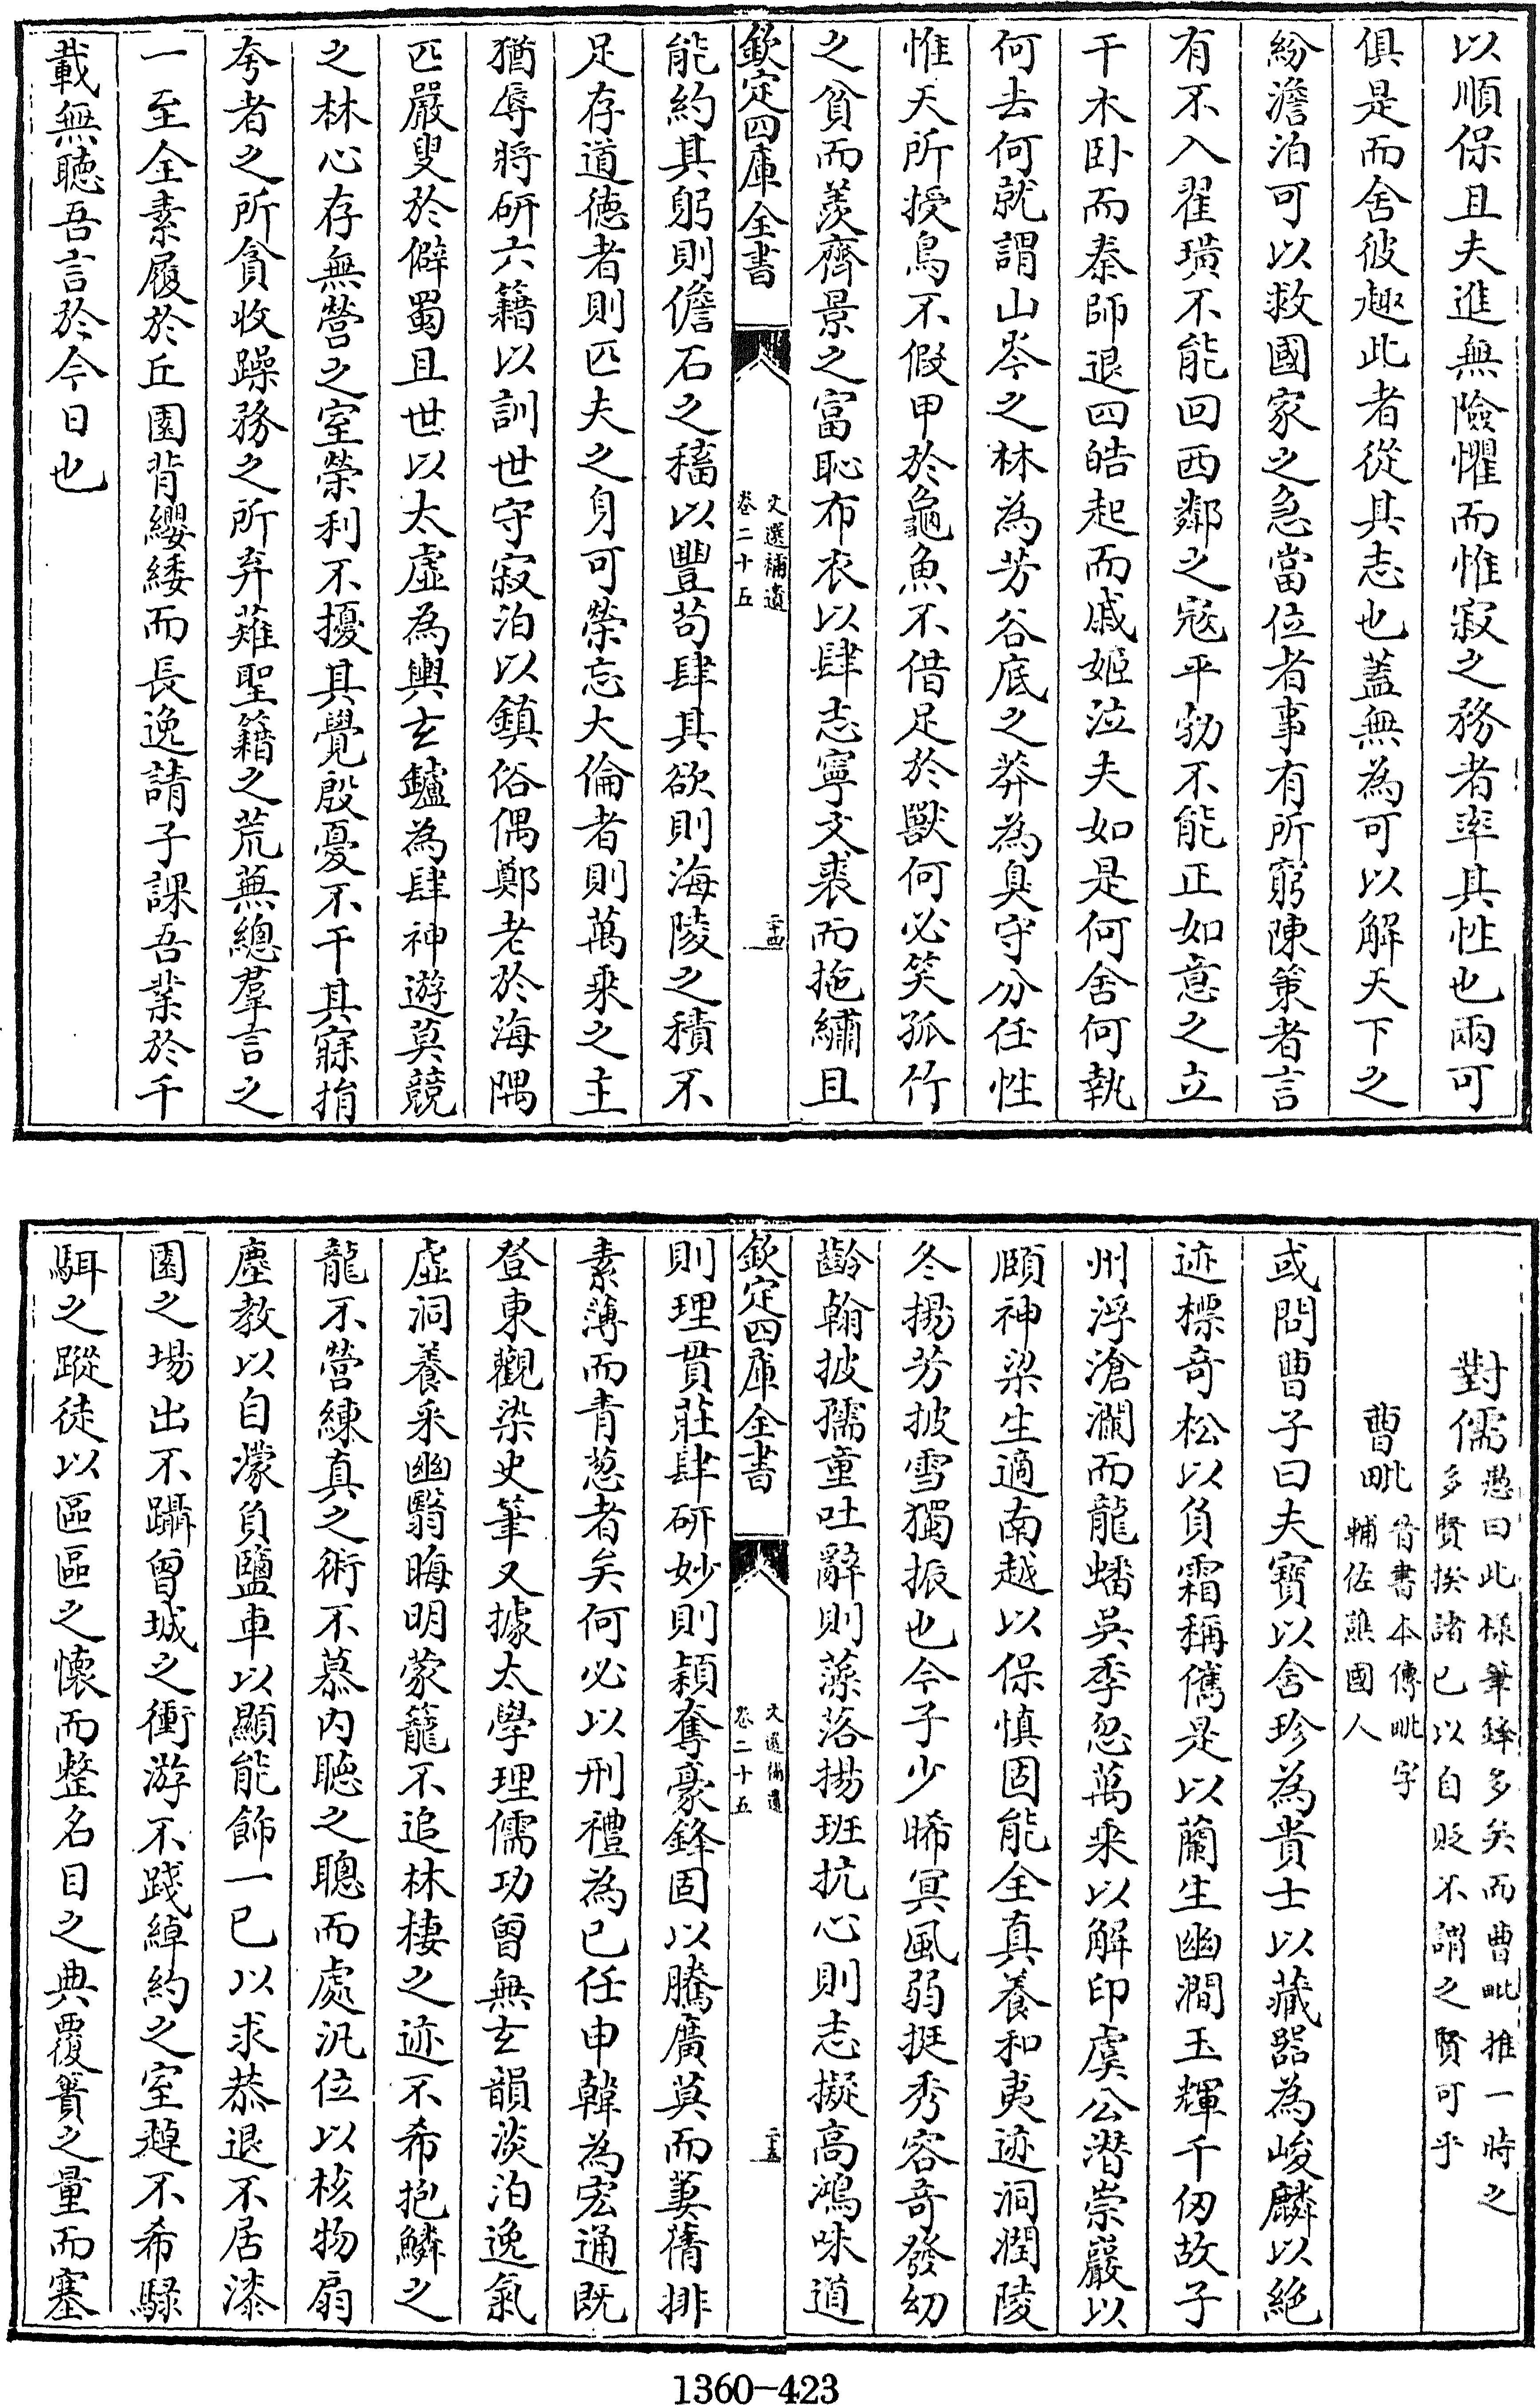 以順保且夫進無險懼而惟寂之務者率其性也兩可
俱是而舍彼趣此者從其志也蓋無為可以解天下之
紛澹泊可以救國家之急當位者事有所窮陳策者言
有不入翟璜不能回西鄰之寇平勃不能正如意之立
干木卧而秦師退四皓起而戚姬泣夫如是何舍何執
何去何就謂山岑之林為芳谷底之莽為臭守分任性
惟天所授鳥不假甲於龜魚不借足於獸何必笑孤竹
之貧而羨齊景之富恥布衣以肆志寧文裘而拖繡且
欽定四庫全書
文選補遺
卷二十五
二十四
能約其躬則儋石之稸以豐苟肆其欲則海陵之積不
足存道德者則匹夫之身可榮忘大倫者則萬乘之主
猶辱將研六籍以訓世守寂泊以鎮俗偶鄭老於海隅
匹嚴叟於僻蜀且世以太虛為輿玄鑪為肆神遊莫競
之林心存無營之室榮利不擾其覺殷憂不干其寐捐
夸者之所貪收躁務之所弃薙聖籍之荒蕪總羣言之
一至全素履於丘園背纓緌而長逸請子課吾業於千
載無聽吾言於今日也
對儒愚曰此様筆鋒多矣而曹毗推一時之
多賢揆諸已以自貶不謂之賢可乎
曹毗晉書本傳毗字
輔佐譙國人
或問曹子曰夫寶以含珍為貴士以藏器為峻麟以絶
迹標奇松以負霜稱儁是以蘭生幽澗玉輝千仞故子
州浮滄瀾而龍蟠吳季忽萬乘以解印虞公潛崇巖以
頤神梁生適南越以保慎固能全真養和夷迹洞潤陵
冬揚芳披雪獨振也今子少晞冥風弱挺秀容奇發幼
齡翰披孺童吐辭則藻落揚班抗心則志擬高鴻味道
欽定四庫全書
文選補遺
卷二十五
二十五
則理貫莊肆研妙則穎奪豪鋒固以騰廣莫而萋蒨排
素薄而青葱者矣何必以刑禮為已任申韓為宏通既
登東觀染史筆又據太學理儒功曾無玄韻淡泊逸氣
虛洞養采幽翳晦明蒙籠不追林棲之迹不希抱鱗之
龍不營練真之術不慕內聽之聰而處汎位以核物扇
塵教以自濛負鹽車以顯能飾一已以求恭退不居漆
園之場出不躡曾城之衝游不踐綽約之室趠不希騄
駬之蹤徒以區區之懷而整名目之典覆簣之量而塞
1360-423